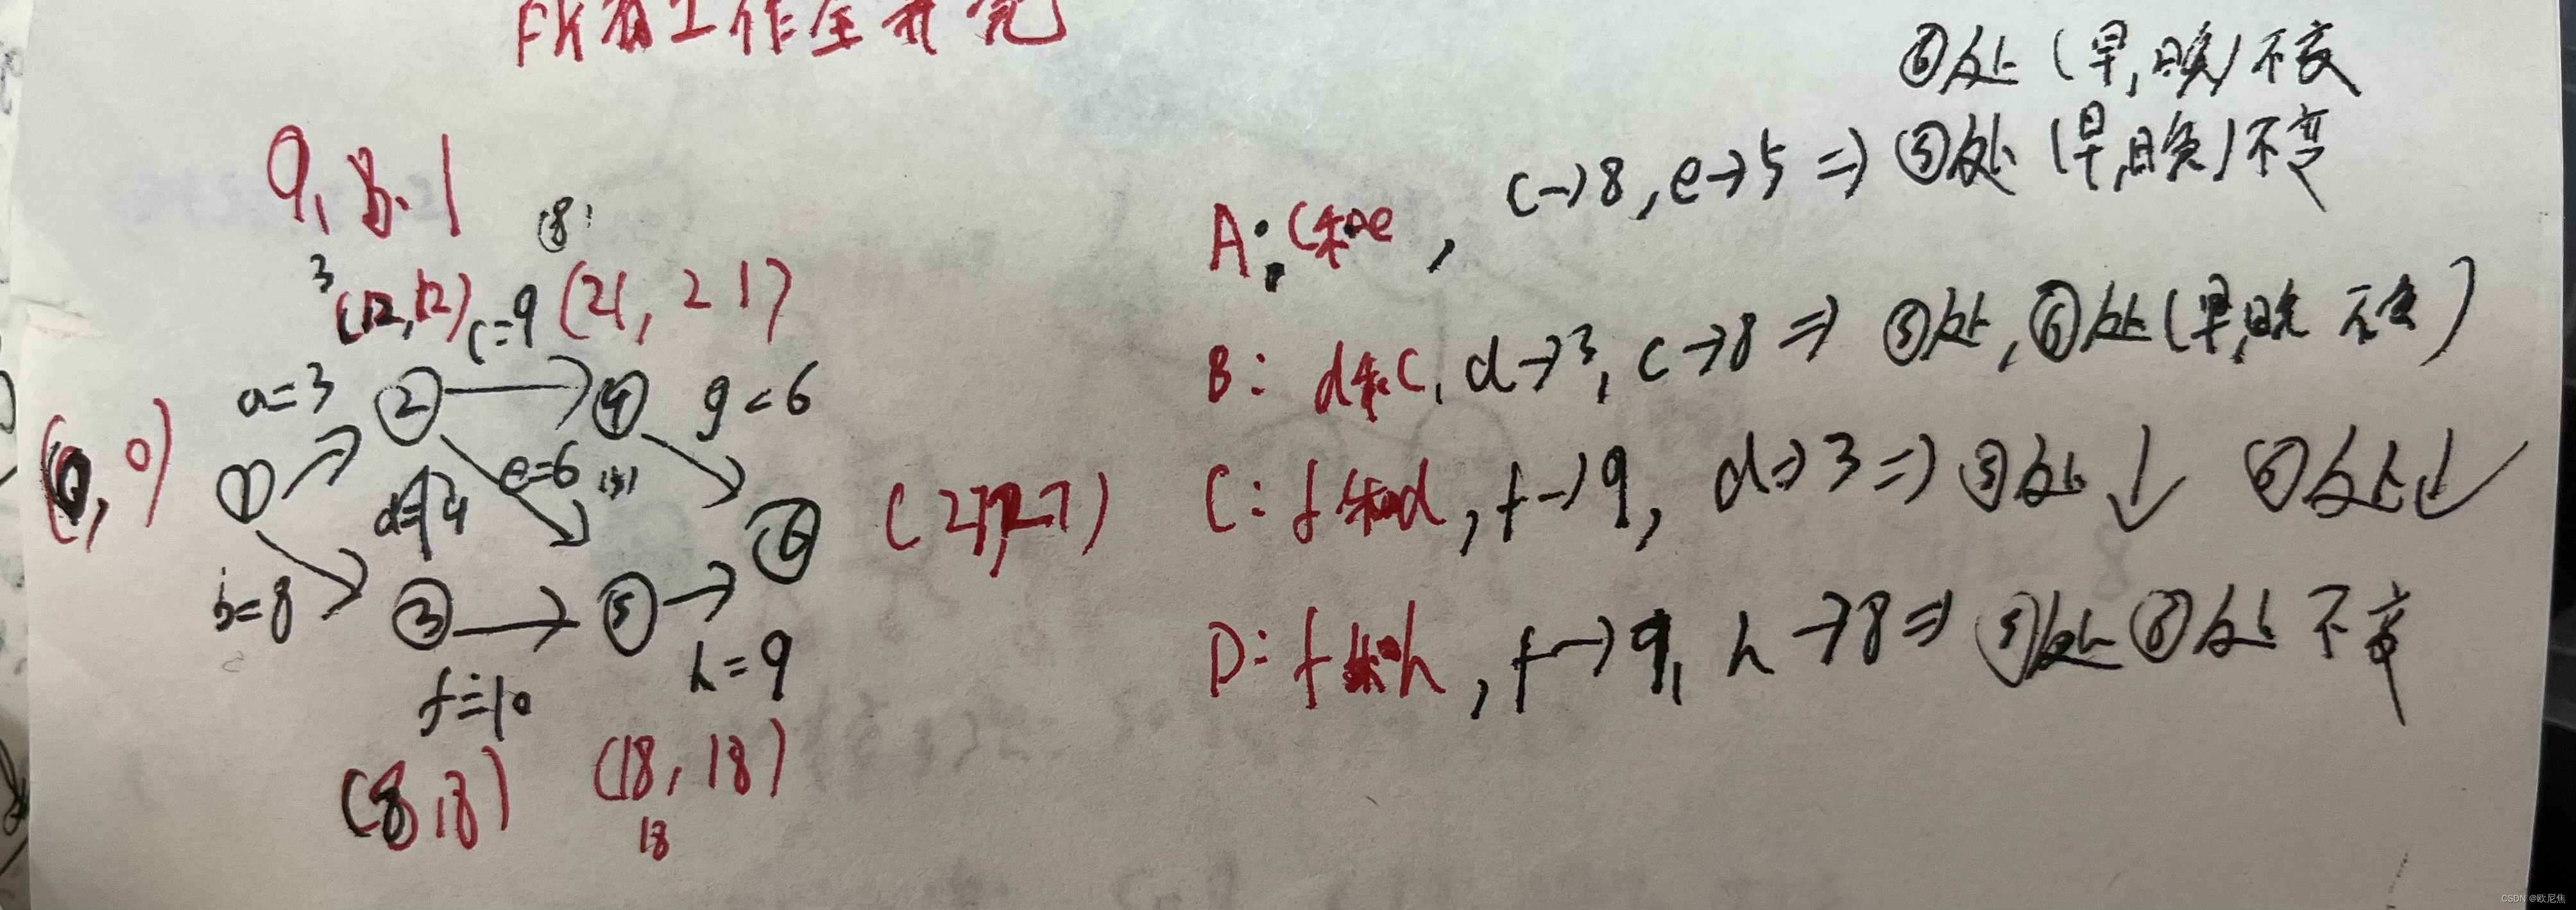 工作全
9, 8. 1
(8)
3
(12,12) c=9 (21, 21)
a=3 ② ④ g=6
(0,0) ① d=4 e=6 (5) ⑥ (27,27)
b=8 ③ ⑤
f=10 h=9
(8,8) (18,18)
18
⑥处(早,晚)不变
A:c和e, c→8, e→5 ⇒ ⑤处(早,晚)不变
B: d和c, d→3, c→8 ⇒ ⑤处,⑥处(早,晚 不变)
C: f和d, f→9, d→3 ⇒ ⑤处↓ ⑥处↓
D: f和h, f→9, h→8 ⇒ ⑤处⑥处 不变
CSDN @欧尼焦